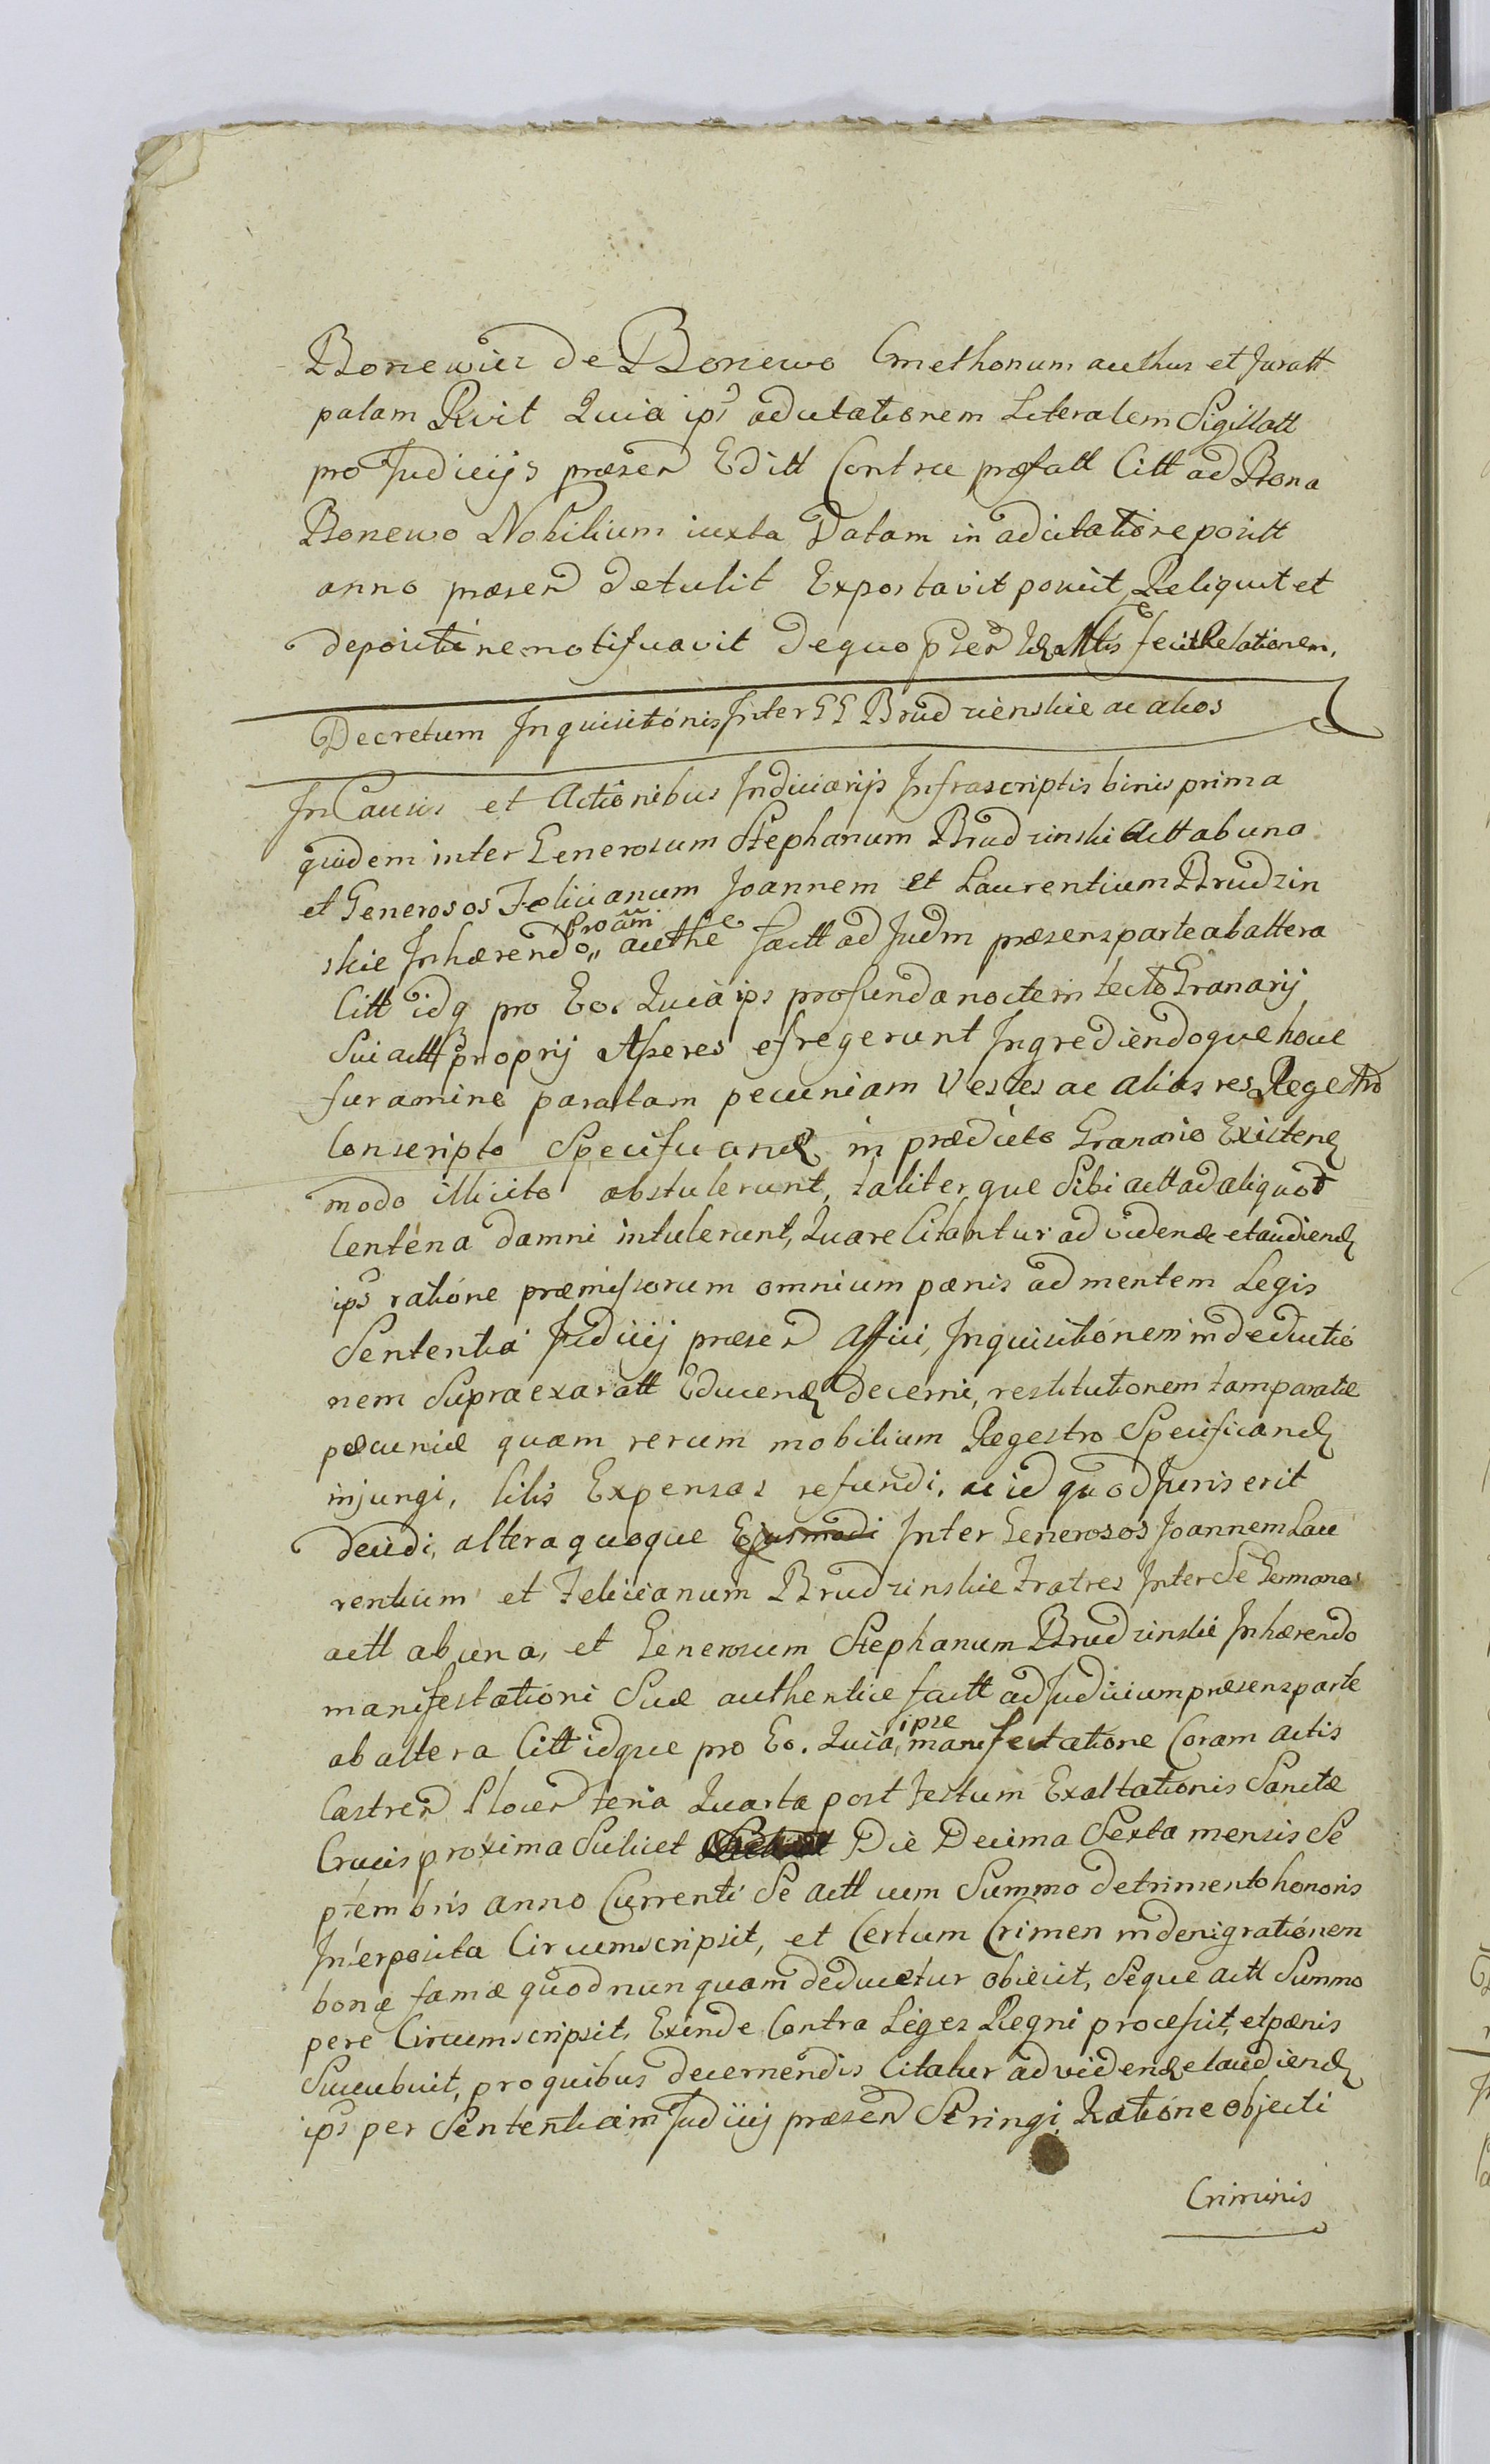 Bonewicz de Bonewo Cmethonum authus et Juratt
palam Rvit Quia ips adcitationem Literalem Sigillatt
pro Judicijs præsen Editt Contra præfatt Citt ad Bona
Bonewo Nobilium iuxta Datam in adcitatiōne positt
anno præsen detulit Exportavit posuit Reliquit et
depositiōne notificavit de quo psen fecit Relationem.
Decretum Inquisitiónis Inter GG Brudzienskie ac alios
In Causis et Actionibus Judiciarijs Infrascriptis binis prima
quidem inter Generosum Stephanum Brudzinski Actt ab una
et Generosos Felicianum Joannem et Laurentium Brudzin
skie Inhærendo „ Proãmi authe factt ad Judm præsens parte ab altera
Citt idq pro Eo. Quia ips profunda nocte in tecto Granarij
Sui actt proprij Asseres efregerunt Ingrediendoque hoce
furamine paratam pecuniam Vestes ac alias res Regestro
Conscripto Specificand in prædicto Granario Existen
modo illicito abstulerunt, taliterque Sibi actt ad aliquot
Centéna damni intulerunt, Quare Citantur ad videnđ et audienđ
ips ratióne præmissorum omnium pænis ad mentem Legis
Sententia Judicij præsen Affici, Inquisitiónem in deductió
nem Supra exaratt Educenđ decerni, restitutionem tam paratæ
pecuniæ quam rerum mobilium Regestro Specificanđ
injungi, litis Expensas refundi, ac id quod Juris erit
decidi, altera quoque Ejusmodi Inter Generosos Joannem Lau
rentium et Felicianum Brudzinskie Fratres Inter Se Germanos
actt ab una, et Generosum Stephanum Brudzinski Inhærendo
manifestationi Suæ authenticæ factt ad Judicium præsens parte
ab altera Citt idque pro Eo. Quia, ipse manifestatione Coram actis
Castren Plocen feria Quarta post Festum Exaltationis Sanctæ
Crucis proxima Scilicet Die Decima Sexta mensis Se
ptembris anno Currenti Se actt cum Summo detrimento honoris
Interposita Circumscripsit, et Certum Crimen in denigratiónem
bonæ famæ quod nunquam deducetur obiecit, Seque actt Summo
pere Circumscripsit, Exinde Contra Leges Regni processit, et pænis
Succubuit, pro quibus decernendis Citatur ad videnđ et audienđ
ips per Sententiam Judicij præsen Stringi, Ratióne objecti
Criminis